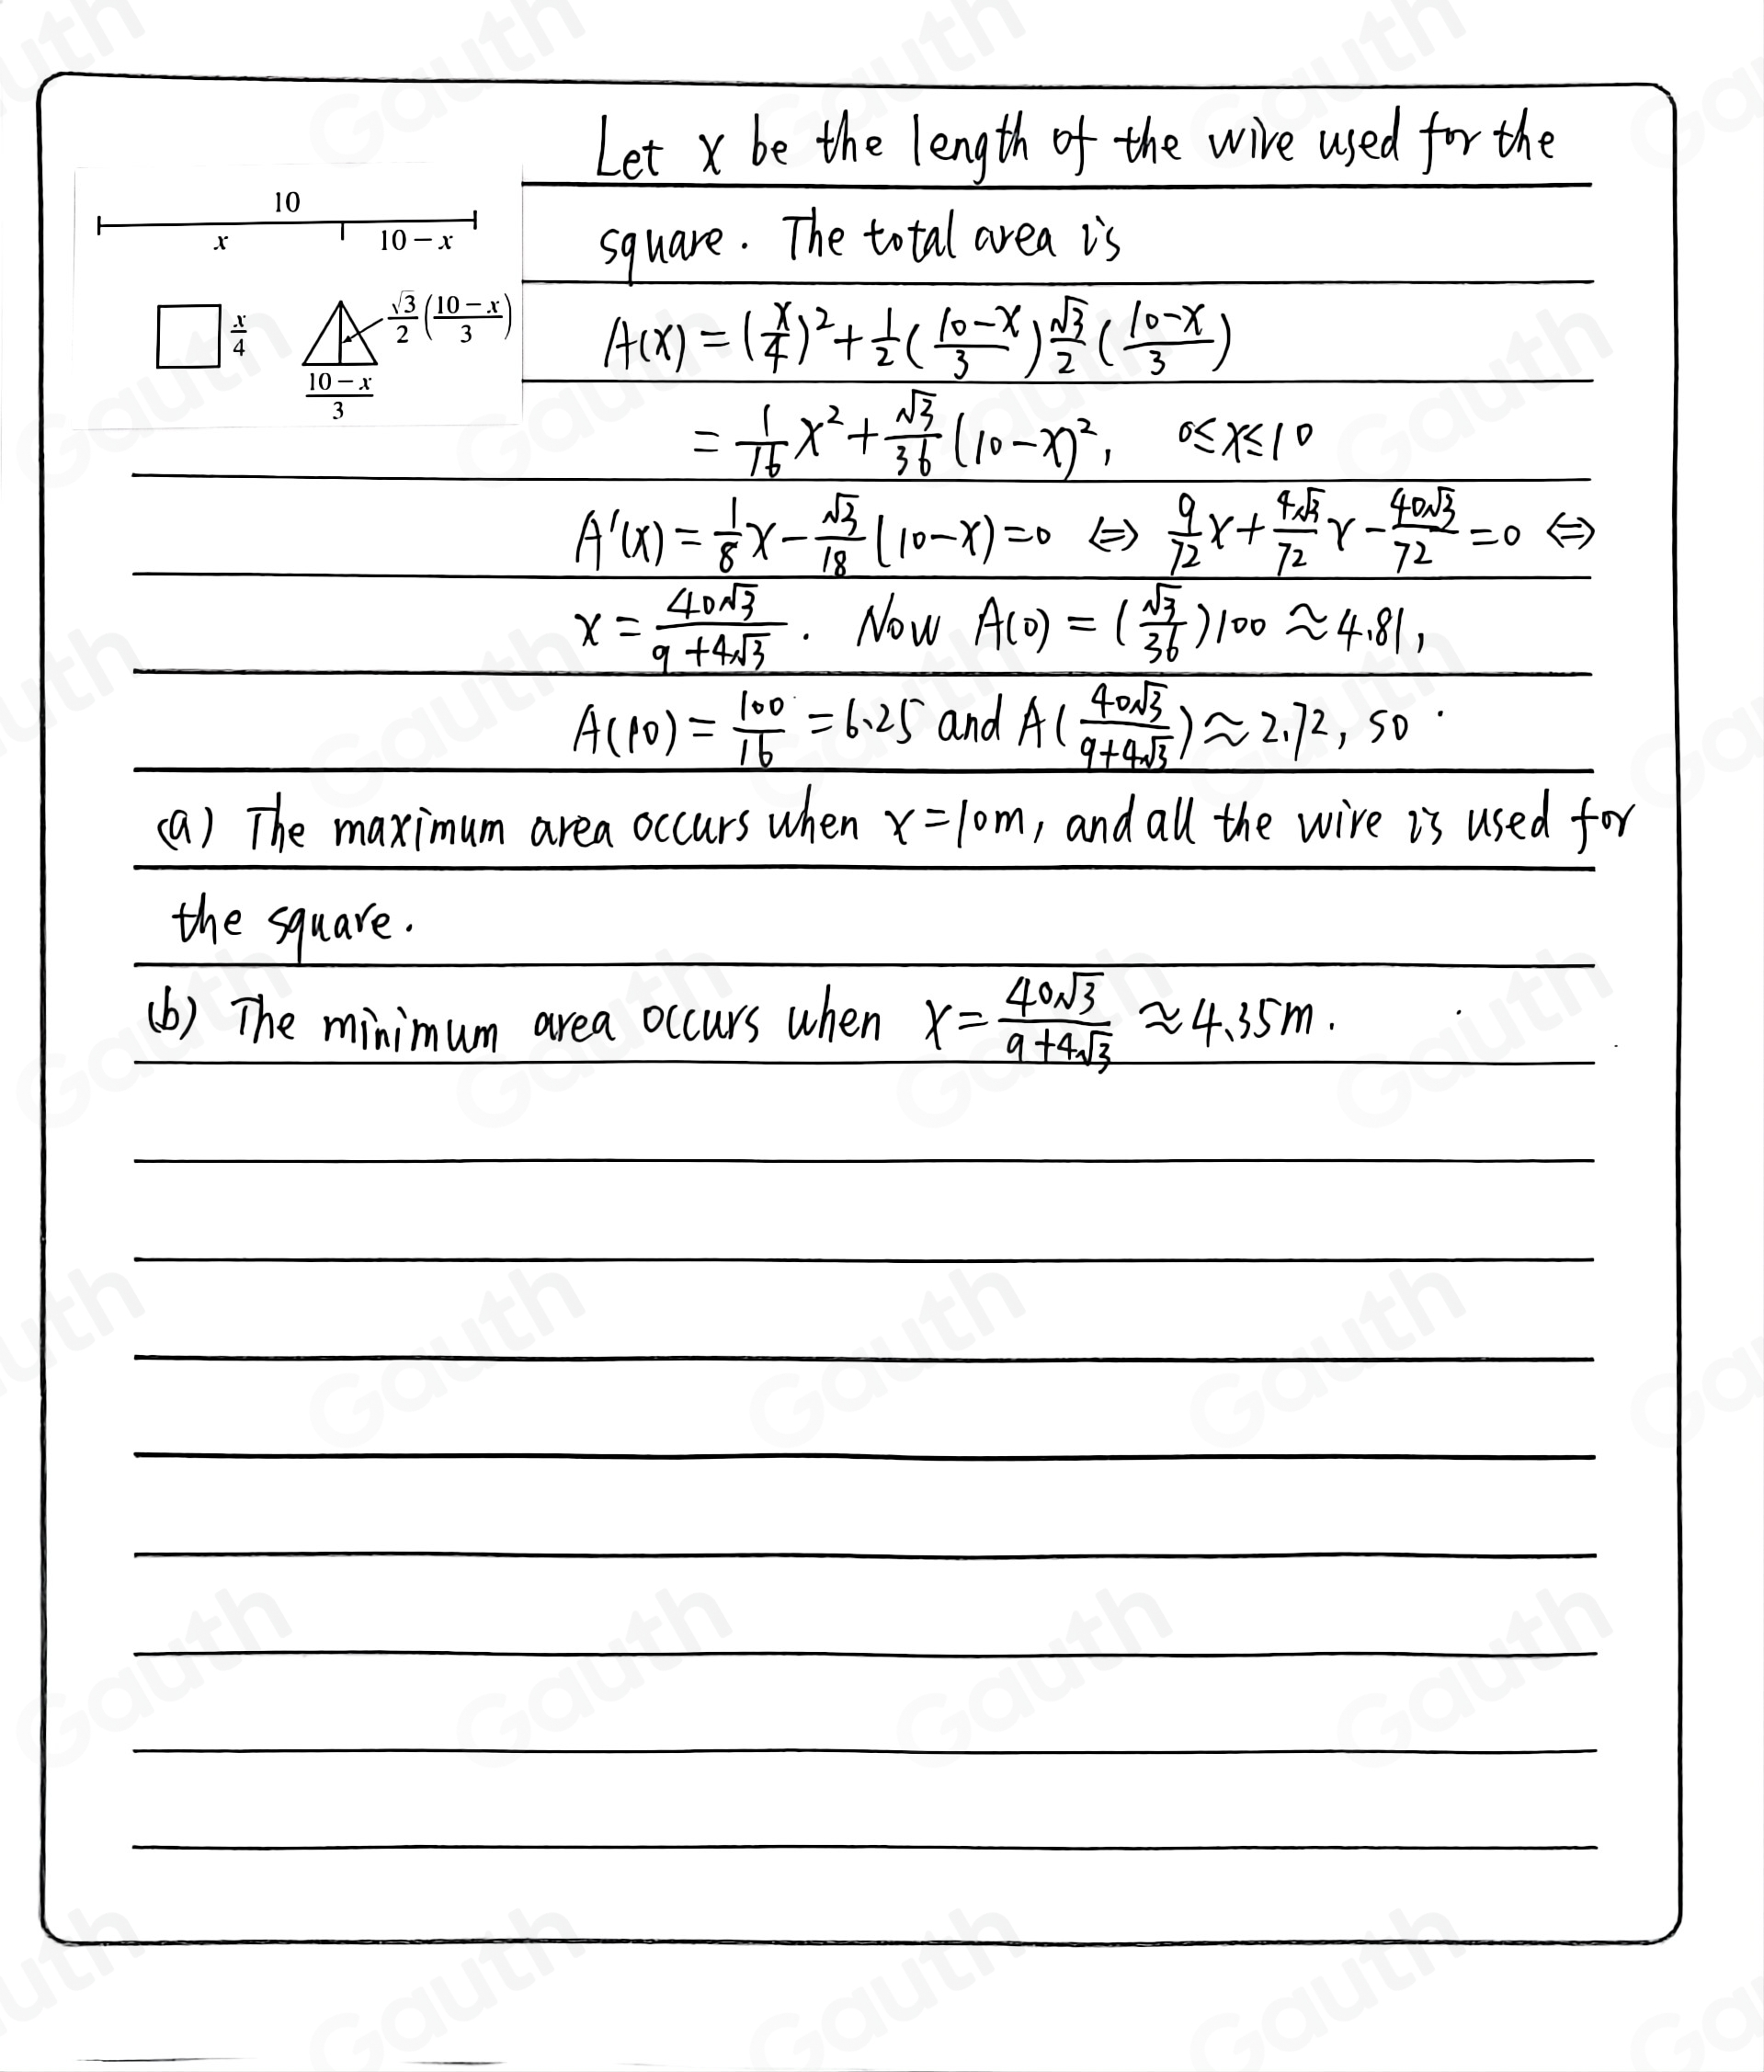 10
x 10 − x
x/4
√3/2 ((10 − x)/3)
(10 − x)/3
Let x be the length of the wire used for the
square. The total area is
A(x) = (x/4)² + 1/2 ((10−x)/3) √3/2 ((10−x)/3)
= 1/16 x² + √3/36 (10−x)², 0≤x≤10
A'(x) = 1/8 x − √3/18 (10−x) = 0 ⇔ 9/72 x + 4√3/72 x − 40√3/72 = 0 ⇔
x = 40√3/(9+4√3). Now A(0) = (√3/36)100 ≈ 4.81,
A(10) = 100/16 = 6.25 and A(40√3/(9+4√3)) ≈ 2.72, so
(a) The maximum area occurs when x=10m, and all the wire is used for
the square.
(b) The minimum area occurs when x = 40√3/(9+4√3) ≈ 4.35m.
Gauth